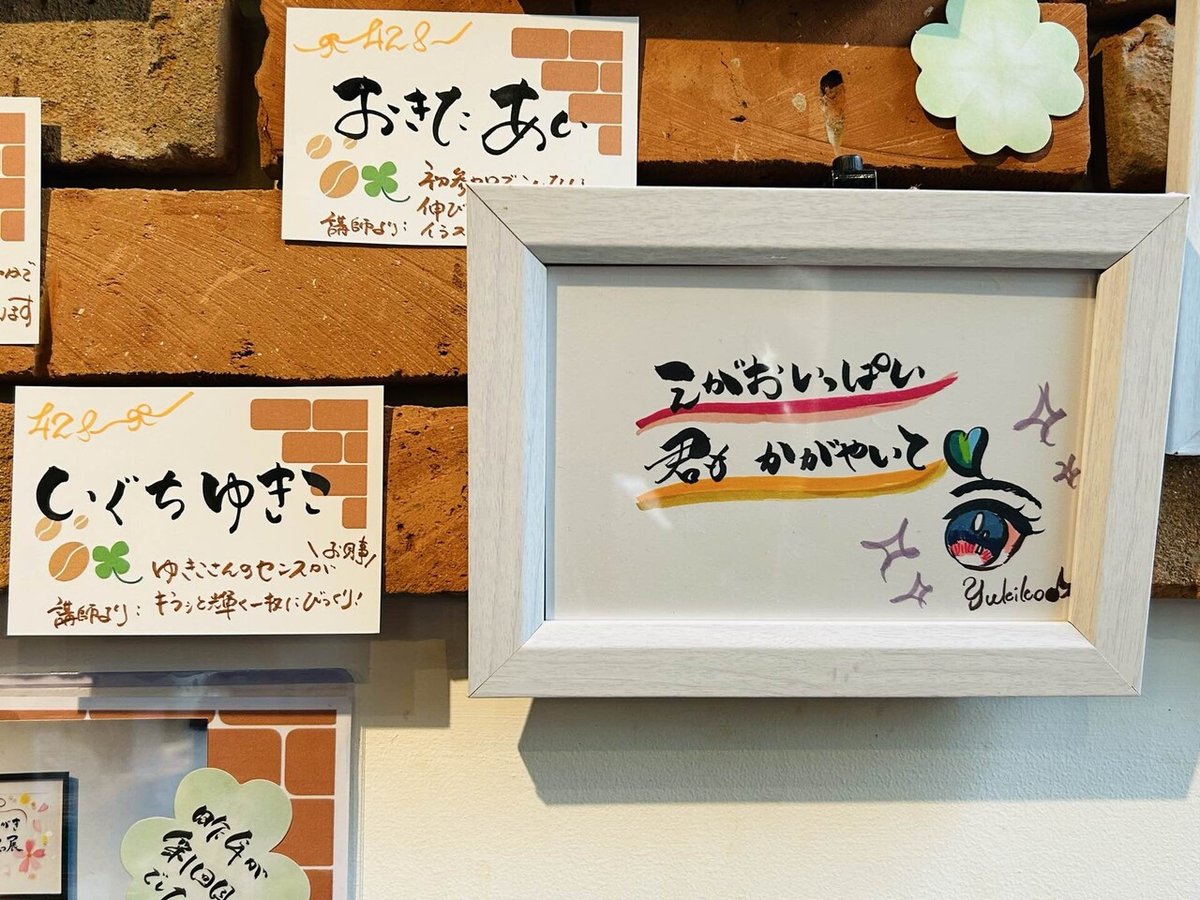 428
おきた あい
初参加
伸び
講師より：イラス
で
ます
えがおいっぱい
君も かがやいて
Yukiko
428
いぐちゆきこ
\お見事/
ゆきこさんのセンスが
講師より：キラッと輝く一枚にびっくり！
昨年が
第1回
でした